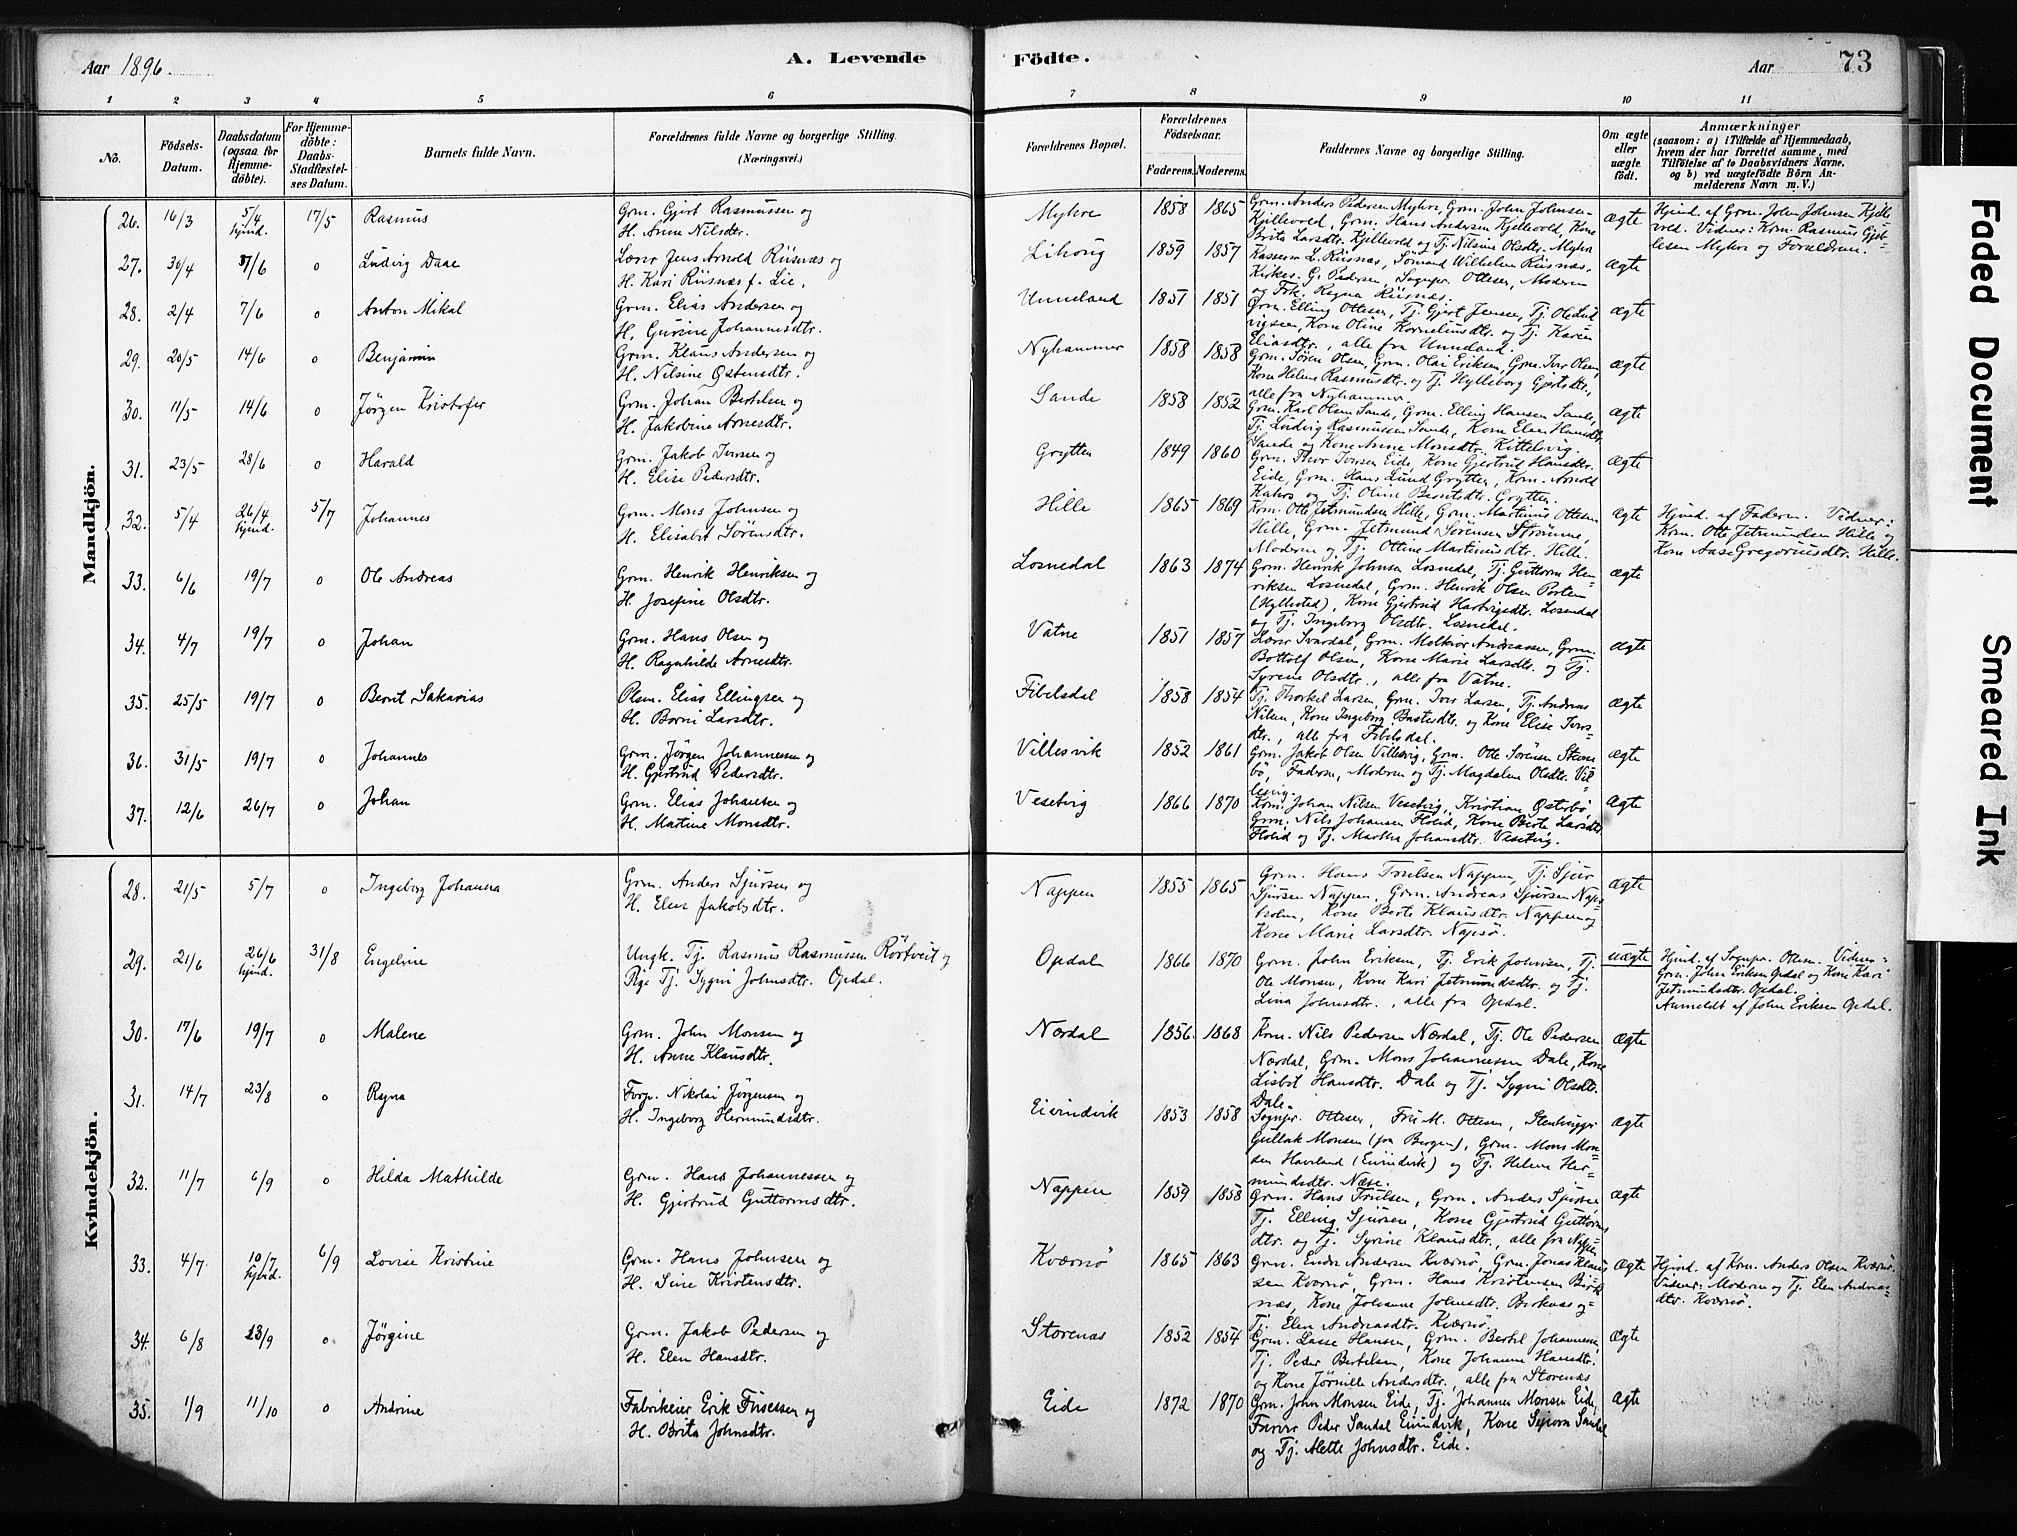 Aar 1896.
A. Levende
Födte.
Aar
73
1 2 3 4 5 6 7 8 9 10 11
No.
Födsels-Datum.
Daabsdatum (ogsaa for Hjemme-döbte).
For Hjemme-döbte: Daabs-Stadfæstel-ses Datum.
Barnets fulde Navn.
Forældrenes fulde Navne og borgerlige Stilling. (Næringsvei.)
Forældrenes Bopæl.
Forældrenes Födselsaar.
Faderens. Moderens.
Faddernes Navne og borgerlige Stilling.
Om ægte eller uægte födt.
Anmærkninger
(saasom: a) i Tilfælde af Hjemmedaab,
hvem der har forrettet samme, med
Tilföielse af to Daabsvidners Navne,
og b) ved uægtefödte Börn An-
melderens Navn m. V.)
Mandkjön.
26. 16/3 5/4 hjmd. 17/5 Rasmus
Grm. Gjert Rasmussen og
H. Anne Nilsdtr.
Myhre 1858 1865
Grm. Anders Pedersen Myhre, Grm. John Johnsen
Kjellevold, Grm. Hans Andersen Kjellevold, Kone
Brita Larsdtr. Kjellevold og Tj. Nilsine Olsdtr. Myhre
ægte
Hjmd. af Grm. John Johnsen Kjelle-
vold. Vidner: Krm. Rasmus Gjert-
sen Myhre og Forældrene.
27. 30/4 7/6 0 Ludvig Daae
Lærer Jens Arnold Riisnæs og
H. Kari Riisnæs f. Lie.
Lihoug 1859 1857
Kasserer L. Riisnæs, Sömand Wilhelm Riisnæs,
Kirkes. G. Pedersen, Sognepr. Ottesen, Moderen
og Frk. Regna Riisnæs.
ægte
28. 2/4 7/6 0 Anton Mikal
Grm. Elias Andersen og
H. Gurine Johannesdtr.
Unneland 1851 1851
Grm. Elling Ottesen, Tj. Gjert Jensen, Tj. Ole Lud
vigsen, Kone Oline Korneliusdtr. og Tj. Karen
Eliasdtr., alle fra Unneland.
ægte
29. 20/5 14/6 0 Benjamin
Grm. Klaus Andersen og
H. Nilsine Östensdtr.
Nyhammer 1858 1858
Grm. Sören Olsen, Grm. Olai Eriksen, Grm. Iver Olsen,
Kone Helene Rasmusdtr. og Tj. Hylleborg Gjertsdtr.,
alle fra Nyhammer.
ægte
30. 11/5 14/6 0 Jörgen Kristofer
Grm. Johan Bertelsen og
H. Jakobine Arnesdtr.
Sande 1858 1852
Grm. Karl Olsen Sande, Grm. Elling Hansen Sande,
Tj. Ludvig Rasmussen Sande, Kone Elen Hansdtr.
Sande og Kone Anne Monsdtr. Kittelsvig.
ægte
31. 23/5 28/6 0 Harald
Grm. Jakob Iversen og
H. Elise Pedersdtr.
Grytten 1849 1860
Grm. Thor Iversen Eide, Kone Gjertrud Hansdtr.
Eide, Grm. Hans Lund Grytten, Krm. Arnold
og Tj. Oline Berntsdtr. Grytten.
ægte
32. 5/4 26/4 hjmd. 5/7 Johannes
Grm. Mons Johnsen og
H. Elisabet Sörensdtr.
Hille 1865 1869
Krm. Otte Jetmundsen Hille, Grm. Martinus Ottesen
Hille, Grm. Jetmund Sörensen Strömme,
Moderen og Tj. Ottine Martinusdtr. Hille.
ægte
Hjmd. af Faderen. Vidner:
Krm. Otte Jetmundsen Hille og
Kone Aase Gregoriusdtr. Hille.
33. 6/6 19/7 0 Ole Andreas
Grm. Henrik Henriksen og
H. Josefine Olsdtr.
Losnedal 1863 1874
Grm. Henrik Johnsen Losnedal, Tj. Guttorm Hen-
riksen Losnedal, Grm. Henrik Olsen Porten
(Hyllested), Kone Gjertrud Hartvigsdtr. Losnedal
og Tj. Ingeborg Olsdtr. Losnedal.
ægte
34. 4/7 19/7 0 Johan
Grm. Hans Olsen og
H. Ragnhilde Arnesdtr.
Vatne 1851 1857
Lærer Svardal, Grm. Melkior Andreassen, Grm.
Bottolf Olsen, Kone Marie Larsdtr. og Tj.
Syrene Olsdtr., alle fra Vatne.
ægte
35. 25/5 19/7 0 Bernt Sakarias
Plsm. Elias Ellingsen og
H. Borni Larsdtr.
Fibelsdal 1858 1854
Tj. Thorkel Larsen, Grm. Iver Larsen, Tj. Andreas
Nilsen, Kone Ingeborg Bastesdtr. og Kone Elise Ivers
dtr., alle fra Fibelsdal.
ægte
36. 31/5 19/7 0 Johannes
Grm. Jörgen Johannessen og
H. Gjertrud Pedersdtr.
Villesvik 1852 1861
Grm. Jakob Olsen Villesvig, Grm. Otte Sörensen Stens
bö, Faderen, Moderen og Tj. Magdalene Olsdtr. Vil-
lesvig.
ægte
37. 12/6 26/7 0 Johan
Grm. Elias Johansen og
H. Martine Monsdtr.
Vesetvig 1866 1870
Krm. Johan Nilsen Vesetvig, Kristian Österbö
Grm. Nils Johansen Flolid, Kone Berte Larsdtr.
Flolid og Tj. Martha Johansdtr. Vesetvig.
ægte
Kvindekjön.
28. 21/5 5/7 0 Ingeborg Johanna
Grm. Anders Sjursen og
H. Elen Jakobsdtr.
Nappen 1855 1865
Grm. Hans Trulsen Nappen, Tj. Sjur
Sjursen Nappen, Grm. Andreas Sjursen Naps-
holm, Kone Berte Klausdtr. Nappen og
Kone Marie Larsdtr. Napsö.
ægte
29. 21/6 26/6 hjmd. 31/8 Engeline
Ungk. Tj. Rasmus Rasmussen Rörtveit og
Pige Tj. Sygni Johnsdtr. Opdal.
Opdal 1866 1870
Grm. John Eriksen, Tj. Erik Johnsen, Tj.
Ole Monsen, Kone Kari Jetmundsdtr. og Tj.
Lina Johnsdtr., alle fra Opdal.
uægte
Hjmd. af Sognepr. Ottesen. Vidner:
Grm. John Eriksen Opdal og Kone Kari
Jetmundsdtr. Opdal.
Anmeldt af John Eriksen Opdal.
30. 17/6 19/7 0 Malene
Grm. John Monsen og
H. Anne Klausdtr.
Nordal 1856 1868
Krm. Nils Pedersen Nærdal, Tj. Ole Pedersen
Nærdal, Grm. Mons Johannessen Dale, Kone
Lisbet Hansdtr. Dale og Tj. Sygni Olsdtr.
Dale.
ægte
31. 14/7 23/8 0 Regna
Forp. Nikolai Jörgensen og
H. Ingeborg Hermundsdtr.
Eivindvik 1853 1858
Sognepr. Ottesen, Fru M. Ottesen, Stenhugger
Gullak Monsen (fra Bergen), Grm. Mons Mon-
sen Haveland (Eivindvik) og Tj. Helene Her-
mundsdtr. Næse.
ægte
32. 11/7 6/9 0 Hilda Mathilde
Grm. Hans Johannessen og
H. Gjertrud Guttormsdtr.
Nappen 1859 1858
Grm. Hans Trulsen, Grm. Anders Sjursen,
Tj. Elling Sjursen, Kone Gjertrud Guttorms
dtr. og Tj. Syrine Klausdtr., alle fra Nappen
ægte
33. 4/7 10/7 hjmd. 6/9 Lovise Kristine
Grm. Hans Johnsen og
H. Sine Kristensdtr.
Kværnö 1865 1863
Grm. Endre Andersen Kværnö, Grm. Jonas Klaus
sen Kværnö, Grm. Hans Kristensen Birk-
næs, Kone Johanne Johnsdtr. Birknæs og
Tj. Elen Andreasdtr. Kværnö.
ægte
Hjmd. af Krm. Anders Olsen Kværnö.
Vidner: Moderen og Tj. Elen Andreas-
dtr. Kværnö.
34. 6/8 23/9 0 Jörgine
Grm. Jakob Pedersen og
H. Elen Hansdtr.
Storenæs 1852 1854
Grm. Lasse Hansen, Grm. Bertel Johannesen,
Tj. Peder Bertelsen, Kone Johanne Hansdtr.
og Kone Jörnille Andersdtr., alle fra Storenæs
ægte
35. 1/9 11/10 0 Andrine
Fabrikeier Erik Friessen og
H. Brita Johnsdtr.
Eide 1872 1870
Grm. John Monsen Eide, Tj. Johannes Monsen Eide,
Farver Peder Sandal Eivindvik, Kone Syverin Sandal
og Tj. Alette Johnsdtr. Eide.
ægte
Faded Document
Smeared Ink